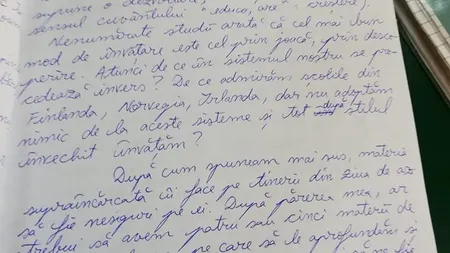 supune o dezvoltare
sensul cuvântului educa, are crestere).
Nenumărate studii arată că cel mai bun
mod de învățare este cel prin joacă, prin desco-
perire. Atunci de ce în sistemul nostru se pro-
cedează invers? De ce admirăm școlile din
Finlanda, Norvegia, Irlanda, dar nu adoptăm
nimic de la aceste sisteme și tot după stilul
învechit învățăm?
După cum spuneam mai sus, materia
supraîncărcată îi face pe tinerii din ziua de az
să fie nesiguri pe ei. După părerea mea, ar
trebui să avem patru sau cinci materii de
pe care să le aprofundăm și
să ne fie